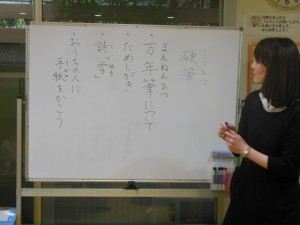 こうひつ
硬筆
まんねんひつ
・万年筆について
・ためしがき
・詩「雪」
・おうちの人に
手紙をかこう